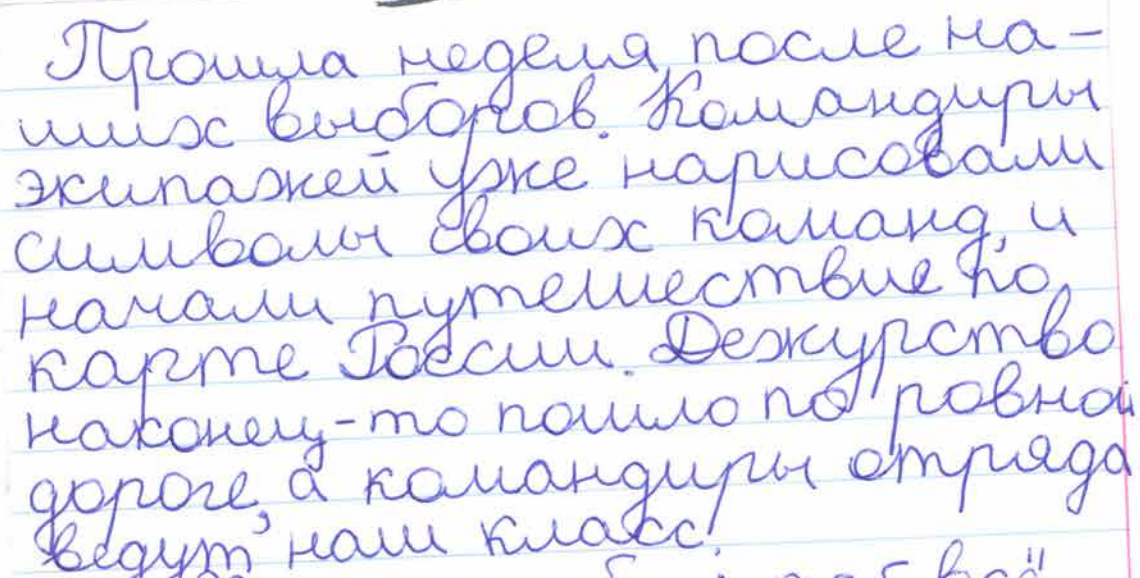 Прошла неделя после на-
ших выборов. Командиры
экипажей уже нарисовали
символы своих команд, и
начали путешествие по
карте России. Дежурство
наконец-то пошло по ровной
дороге, а командиры отряда
ведут наш класс.
всё"